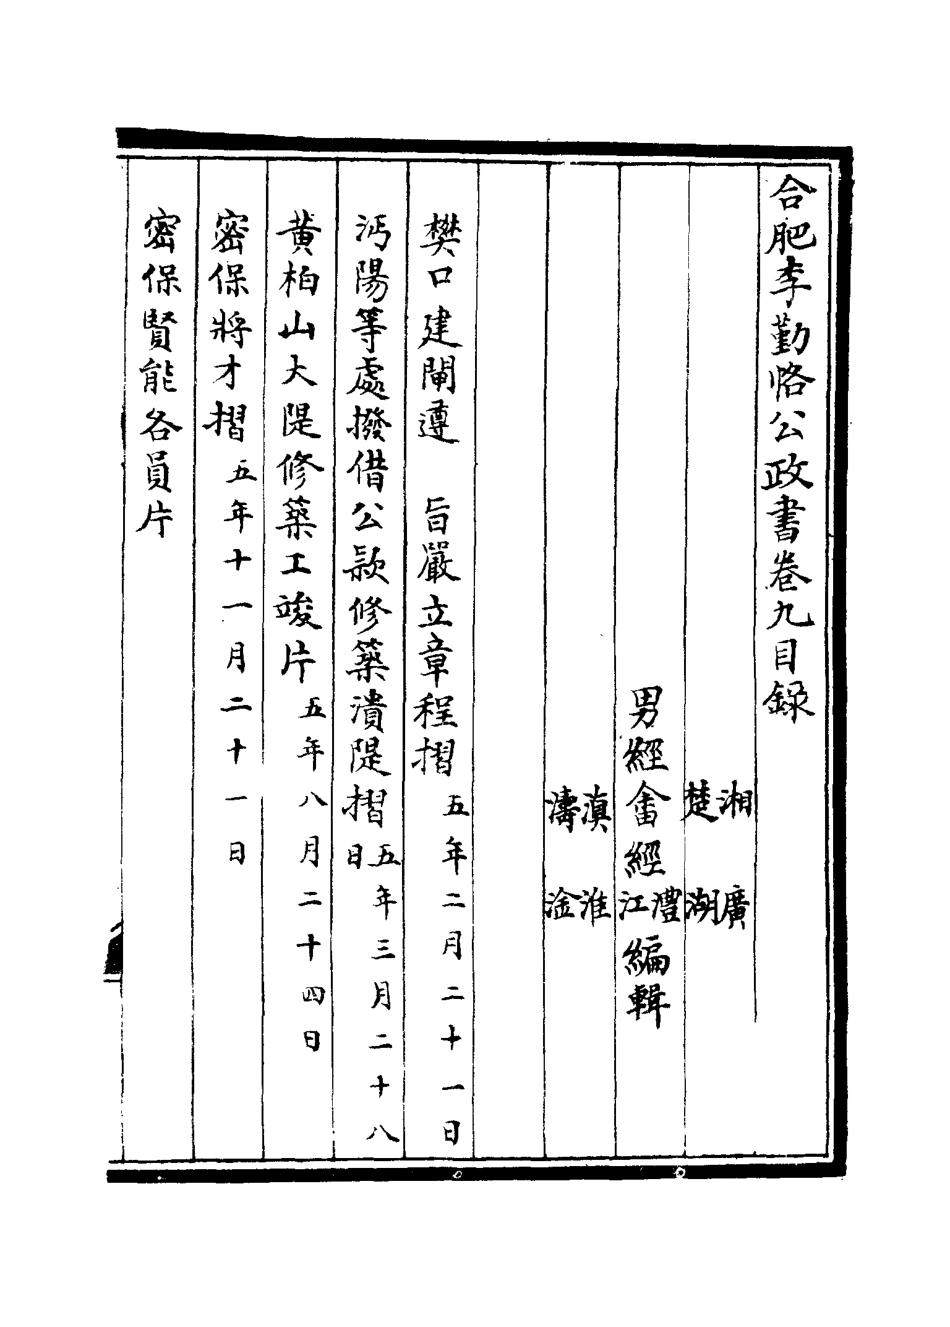 合肥李勤恪公政書卷九目錄
湘 廣
楚 湖
男經畬經澧江編輯
滇 淮
濤 淦
樊口建閘遵 旨嚴立章程摺 五年二月二十一日
沔陽等處撥借公款修築潰隄摺 五年三月二十八日
黃柏山大隄修築工竣片 五年八月二十四日
密保將才摺 五年十一月二十一日
密保賢能各員片